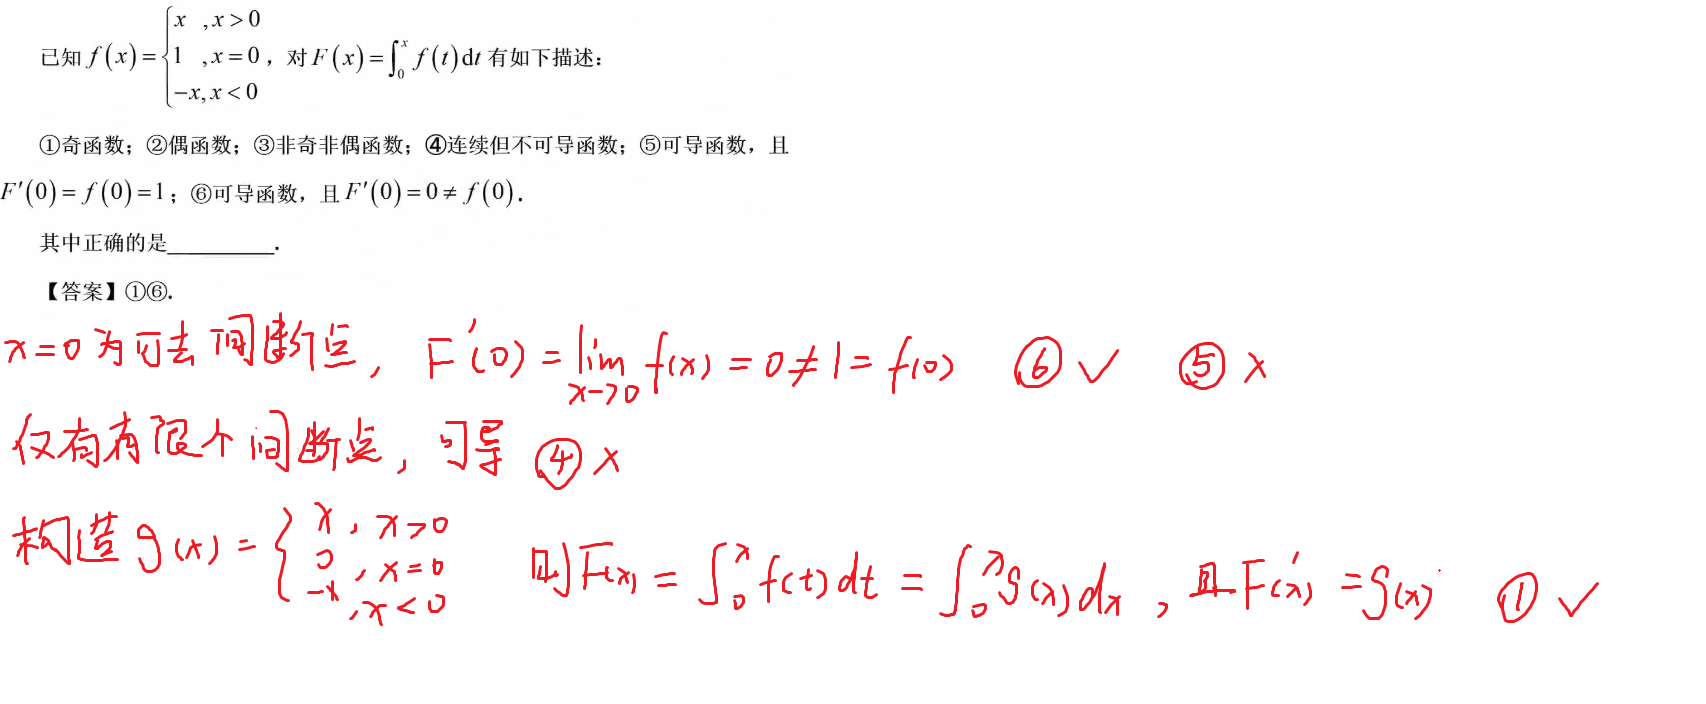 已知 f(x)={x ,x>0
1 ,x=0
-x,x<0 ,对F(x)=∫₀ˣ f(t)dt 有如下描述:
①奇函数;②偶函数;③非奇非偶函数;④连续但不可导函数;⑤可导函数,且
F′(0)=f(0)=1;⑥可导函数,且F′(0)=0≠f(0).
其中正确的是__________.
【答案】①⑥.
x=0为可去间断点, F′(0)=lim x->0 f(x)=0≠1=f(0) ⑥✓ ⑤×
仅有有限个间断点,可导 ④×
构造g(x)={x, x>0
0, x=0
-x, x<0 则F(x)=∫₀ˣ f(t)dt=∫₀ˣ g(x)dx, 且F′(x)=g(x) ①✓